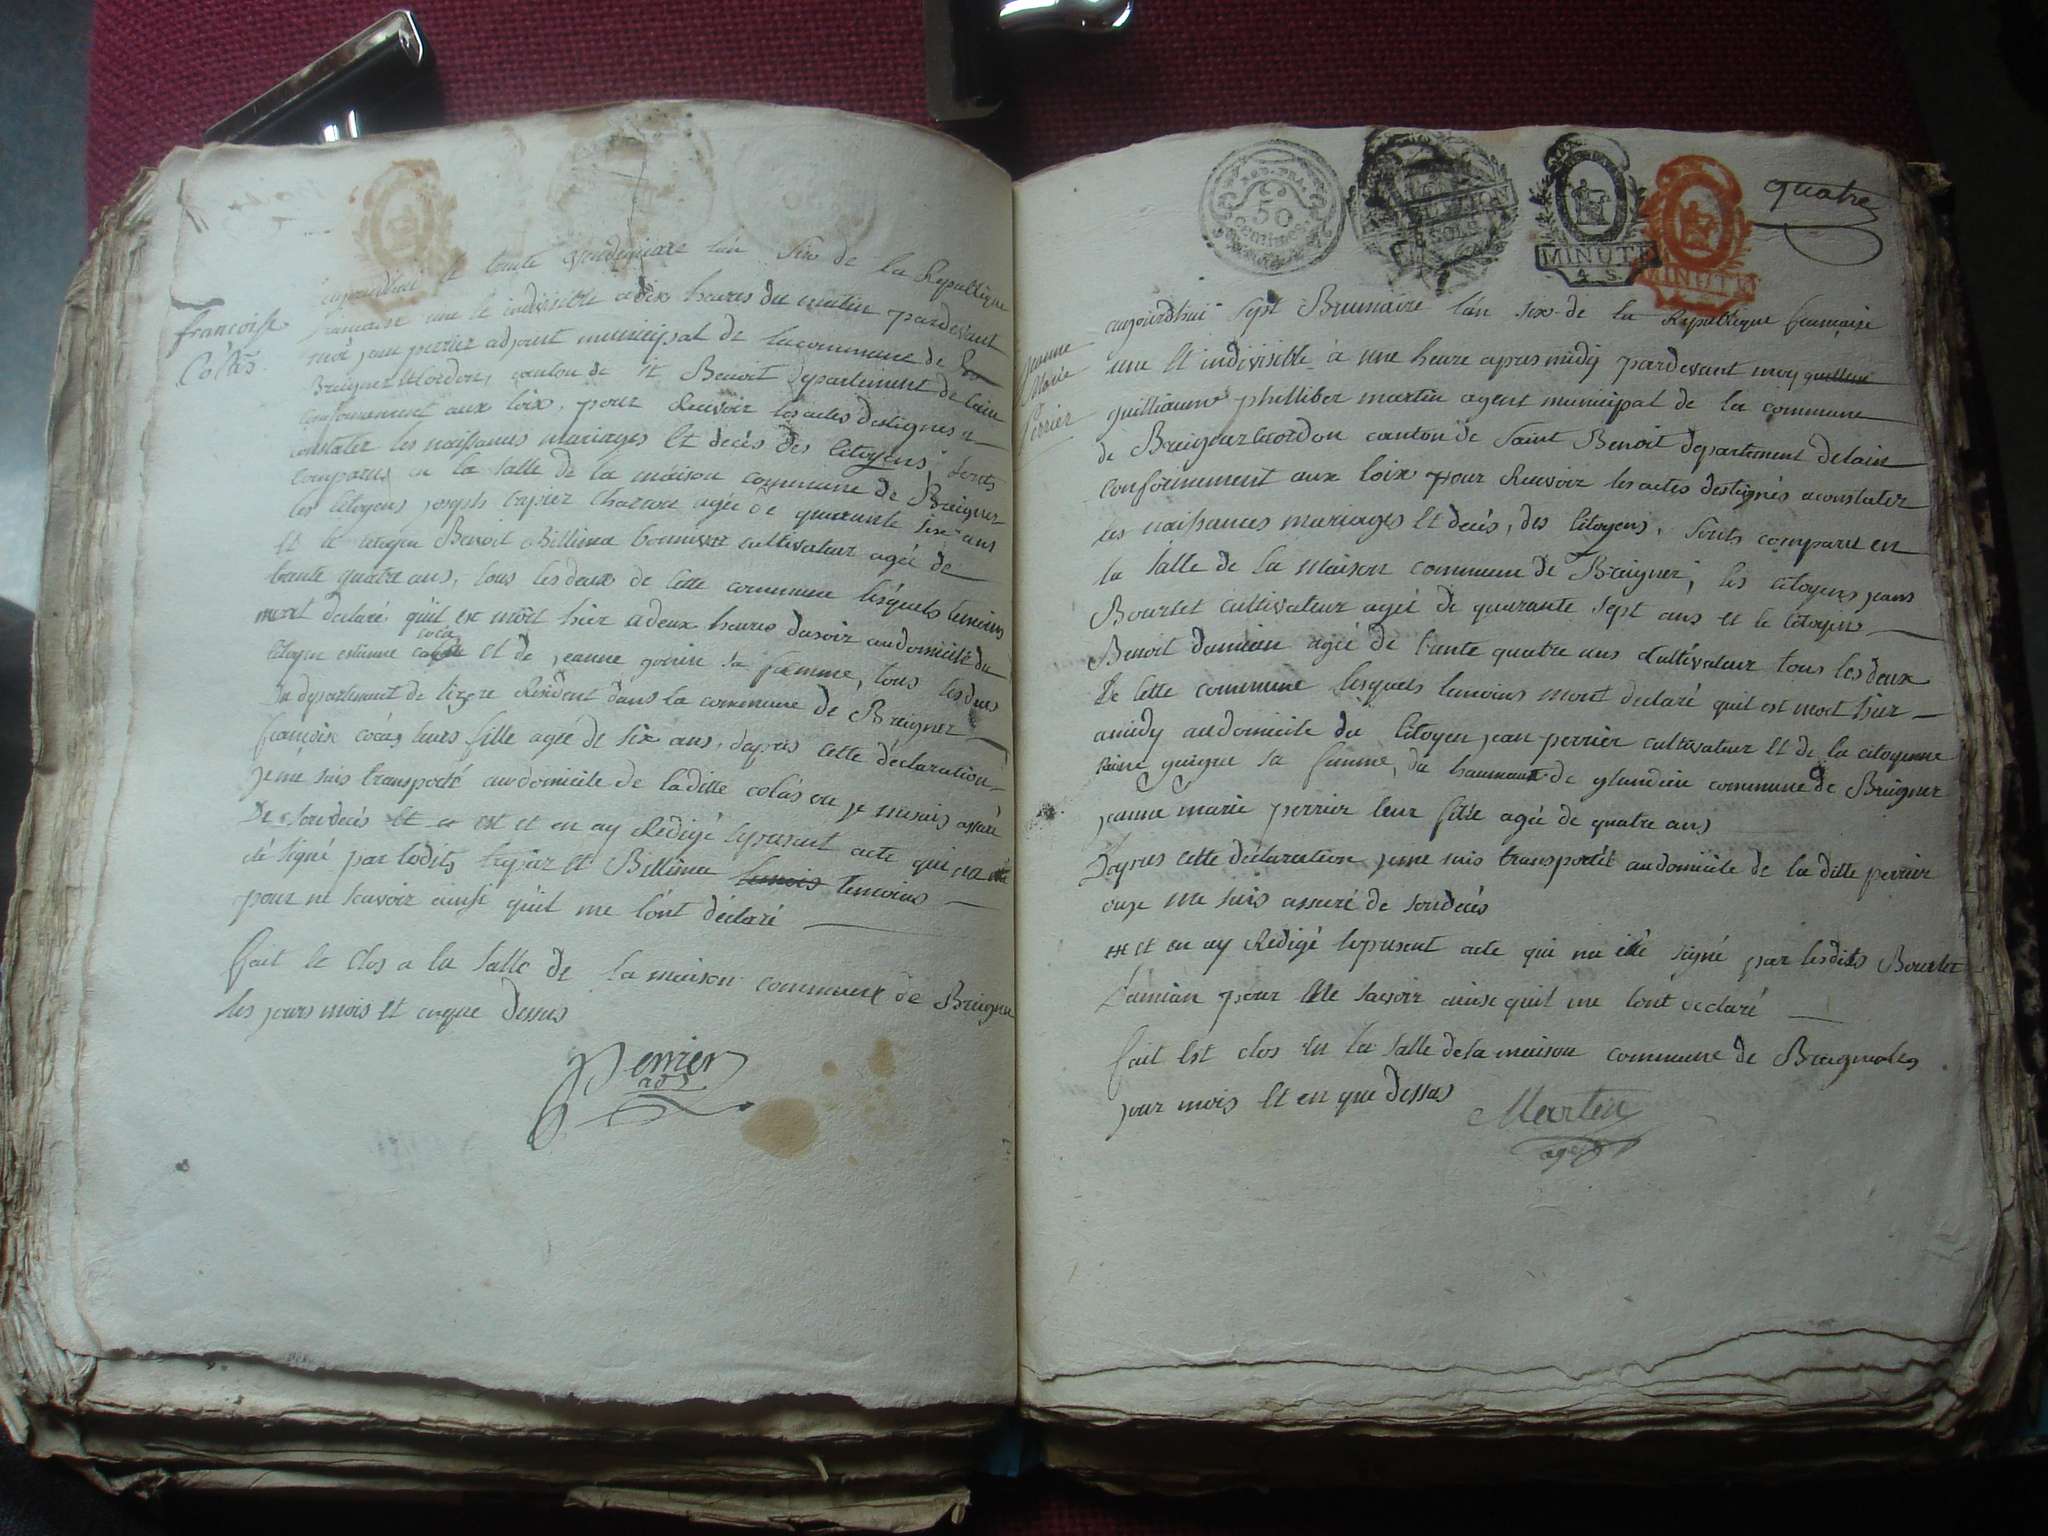 françoise
Colas
aujourdhui le trante vendemiaire lan six de la Republique
francaise une et indivisible a dix heures du matin pardevant
moi jean perrier adjoint municipal de la commune de
Breigner et Cordon, canton de st Benoit departement de lain
conformement aux loix, pour Recevoir les actes destignes a
constater les naissances mariages et decès des Citoyens, sonts
comparus en la salle de la maison commune de Breigner
les citoyens joseph charon agée de quarante six ans
et le citoyen Benoit Billima cultivateur agée de
trante quatre ans, tous les deux de cette commune lésquels temoins
mont declaré quil est mort hier a deux heures du soir au domicile du
Citoyen estienne cola et de jeanne gonin sa famme, tous les deux
du departement de lizere Résident dans la commune de Breigner
françoise colas leurs fille agee de six ans, dapres cette déclaration
je me suis transporté au domicile de laditte colas ou je me suis assuré
De son decès et en ay Rédigé le present acte qui na
été signé par lesdits et Billima temois temoins
pour ne scavoir ainsi quil me lont déclaré
fait et clos a la salle de la maison commune de Breigner
les jours mois et an que dessus
Perrier
adj
quatre
REP. FRA.
50
centimes
MINUTE
4 S.
MINUTE
Jeanne
Marie
Perrier
aujourdhui sept Brumaire lan six de la Republique francaise
une et indivisible a une heure apres midy pardevant moy
guilliaume philliber martin agent municipal de la commune
de Breigner Cordon canton de Saint Benoit departement de lain
conformement aux loix pour Recevoir les actes destignés a constater
les naissances mariages et decès, des Citoyens, sonts comparu en
la salle de la maison commune de Breigner, les citoyens jean
Bourlet cultivateur agée de quarante sept ans et le citoyen
Benoit damian agée de trante quatre ans cultivateur tous les deux
De cette commune lesquels temoins mont declaré quil est mort hier
a midy au domicile du Citoyen jean perrier cultivateur et de la citoyenne
guigue sa famme, du haumaux de glandieu commune de Breigner
jeanne marie perrier leur fille agée de quatre ans
Dapres cette declaration je me suis transportét au domicile de la ditte perrier
ou je me suis assuré de son decès
et en ay Rédigé le present acte qui na été signé par lesdits Bourlet
Damian pour ne savoir ainsi quil me lont declaré
fait est clos en la salle de la maison commune de Breigner les
jour mois et en que dessus
Martin
agent